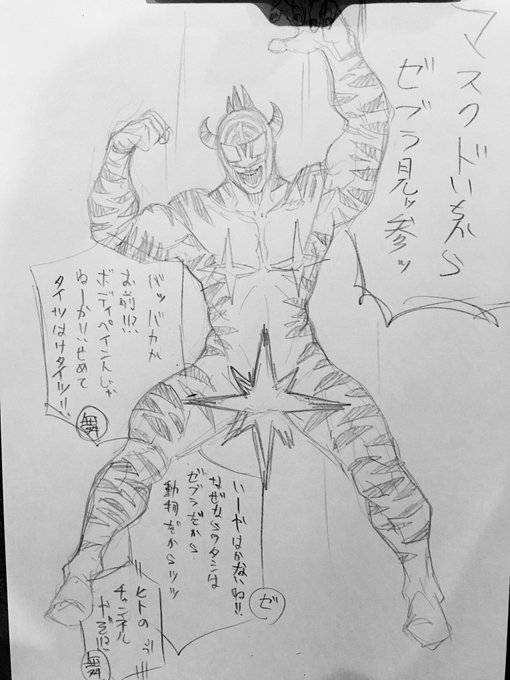 マスクドいちから
ゼブラ見ッ参ッ
バッバカか
お前!!?
ボディペイントじゃ
ねーか!!せめて
タイツはけタイツ!!
舞
いーやはかないね!!
なぜならワタシは
ゼブラだから
動物だからッッ
ゼ
ヒトの
チャンネル
だぞ!!?
舞